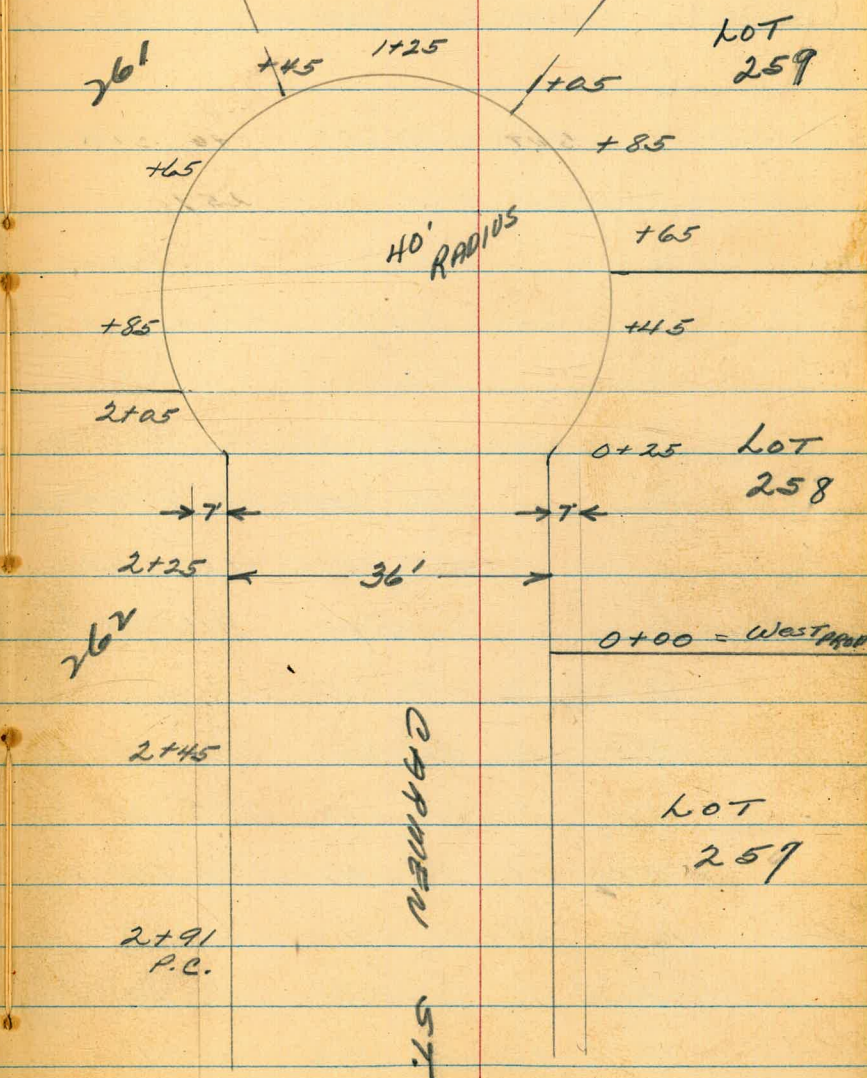 LOT
259
261
+45
1+25
+05
+85
+65
40'
RADIUS
+65
+85
+45
2+05
0+25
LOT
258
7'
7'
2+25
36'
262
0+00 = WEST PROP
2+45
CARMEN ST.
LOT
257
2+91
P.C.